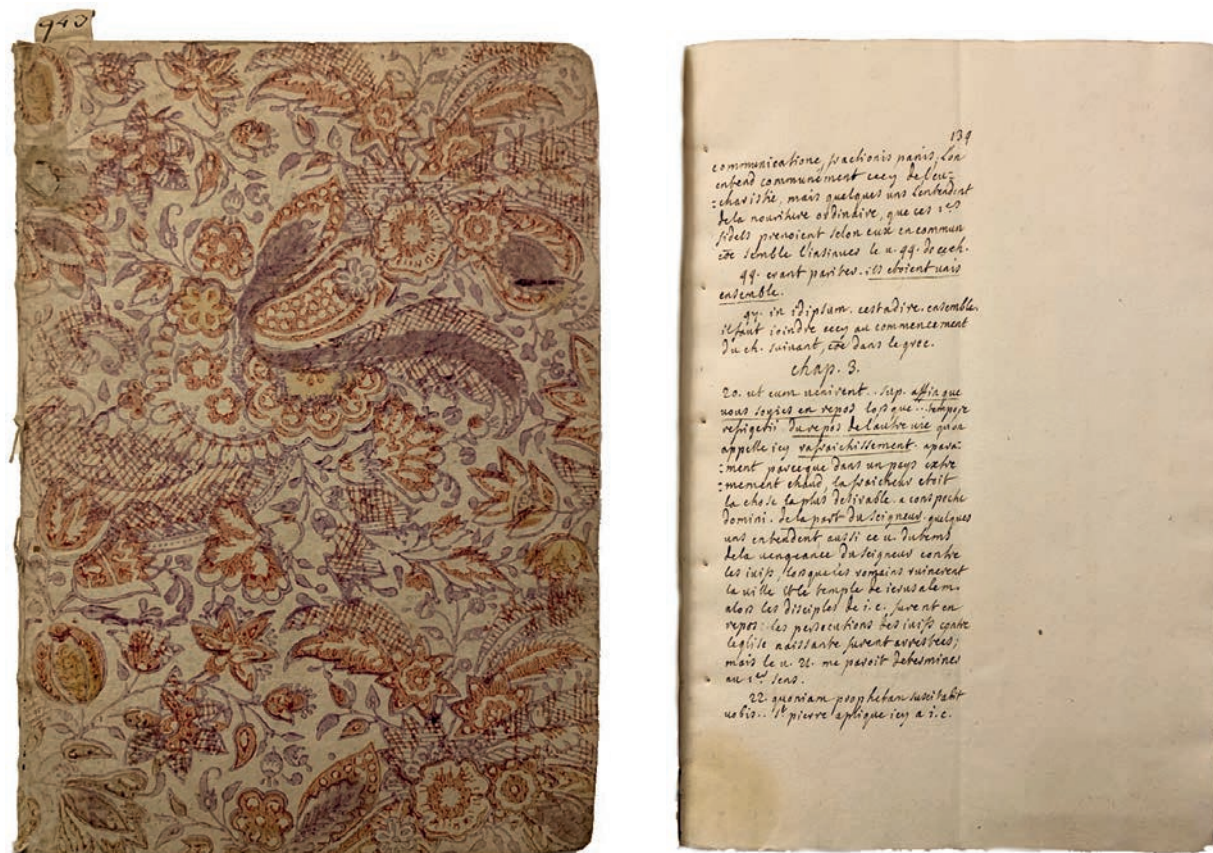 943
139
communicatione fractionis panis. l'on
entend communément cecy de l'eu=
=charistie, mais quelques uns l'entendent
de la nouriture ordinaire, que ces 1ers
fidels prenoient selon eux en commun
cõe semble l'insinuer le v. 44. de ce ch.
44. erant pariter. ils etoient unis
ensemble.
47. in idipsum. cest adire. ensemble.
il faut ioindre cecy au commencement
du ch. suivant, cõe dans le grec.
chap. 3.
20. ut cum venerint.. sup. affin que
vous soyies en repos lors que.. tempora
refrigerii. du repos de l'autre vie qu'on
appelle icy rafraichissement. apara=
=ment parceque dans un pays extre
=mement chaud, la fraicheur etoit
la chose la plus desirable. a conspectu
domini. de la part du seigneur. quelques
uns entendent aussi ce v. du tems
de la vengeance du seigneur contre
les iuifs, lorsque les romains ruinerent
la ville et le temple de ierusalem.
alors les disciples de i.c. furent en
repos: les persecutions des iuifs contre
l'eglise naissante furent arrestées;
mais le v. 21. me paroit determiner
au 1er sens.
22. quoniam prophetam suscitabit
vobis.. st pierre aplique icy a i.c.